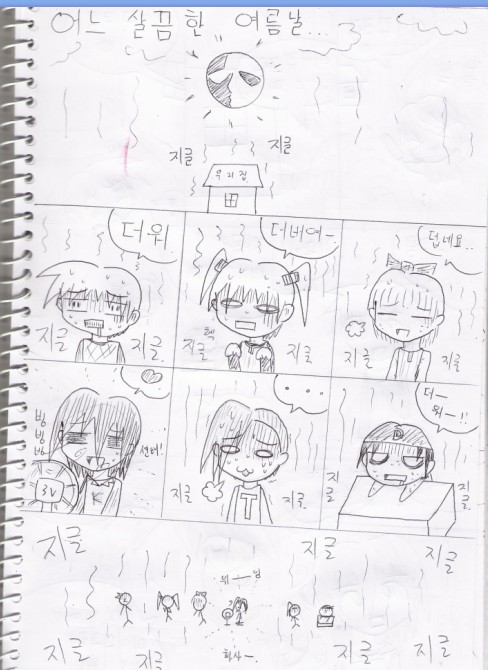 어느 살끔한 여름날...
지글
지글
우리집
더워
지글
지글
더버여~
헥
지글
지글
덥네요..
지글
지글
빙
빙
빙
3V
K
...
지글
T
지글
더—
워—!!
D
지글
지글
지글
지글
지글
위—잉
화사—
지글
지글
지글
지글